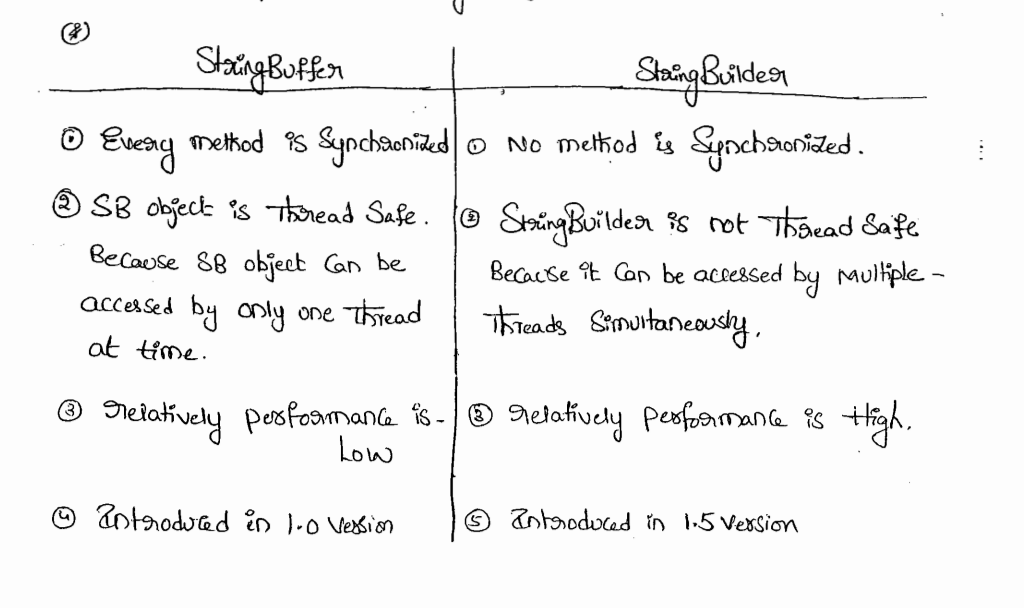 StringBuffer
StringBuilder
① Every method is Synchronized
① No method is Synchronized.
② SB object is Thread Safe.
Because SB object Can be
accessed by only one Thread
at time.
② StringBuilder is not Thread Safe
Because it Can be accessed by Multiple -
Threads Simultaneously.
③ relatively performance is -
Low
③ relatively performance is High.
④ Introduced in 1.0 Version
⑤ Introduced in 1.5 Version